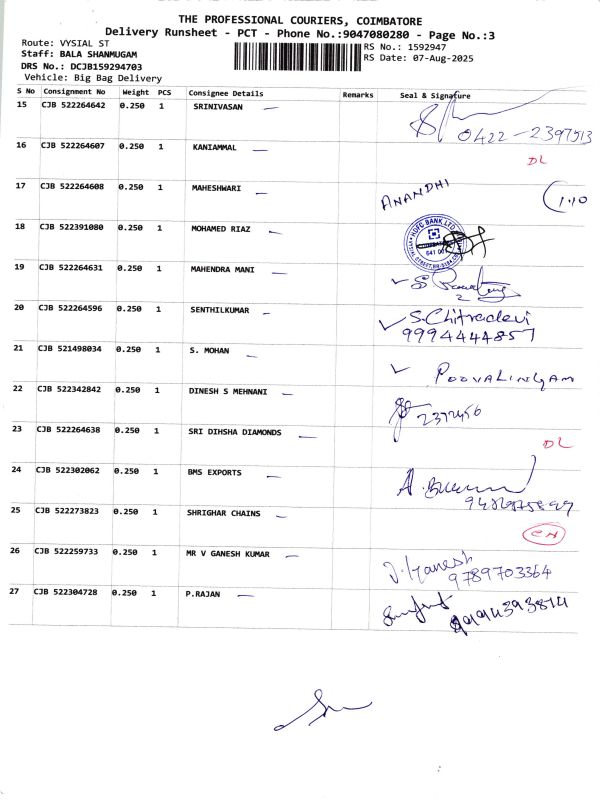 THE PROFESSIONAL COURIERS, COIMBATORE
Delivery Runsheet - PCT - Phone No.:9047080280 - Page No.:3
Route: VYSIAL ST
RS No.: 1592947
Staff: BALA SHANMUGAM
RS Date: 07-Aug-2025
DRS No.: DCJB159294703
Vehicle: Big Bag Delivery
S No Consignment No Weight PCS Consignee Details Remarks Seal & Signature
15 CJB 522264642 0.250 1 SRINIVASAN
0422-2397513
16 CJB 522264607 0.250 1 KANIAMMAL
DL
17 CJB 522264608 0.250 1 MAHESHWARI ANANDHI
18 CJB 522391080 0.250 1 MOHAMED RIAZ HDFC BANK LTD
19 CJB 522264631 0.250 1 MAHENDRA MANI
20 CJB 522264596 0.250 1 SENTHILKUMAR S.Chitradevi
9994444857
21 CJB 521498034 0.250 1 S. MOHAN POOVALINGAM
22 CJB 522342842 0.250 1 DINESH S MEHNANI
23 CJB 522264638 0.250 1 SRI DIHSHA DIAMONDS
DL
24 CJB 522302062 0.250 1 BMS EXPORTS
25 CJB 522273823 0.250 1 SHRIGHAR CHAINS
CH
26 CJB 522259733 0.250 1 MR V GANESH KUMAR J.Ganesh
9789703364
27 CJB 522304728 0.250 1 P.RAJAN